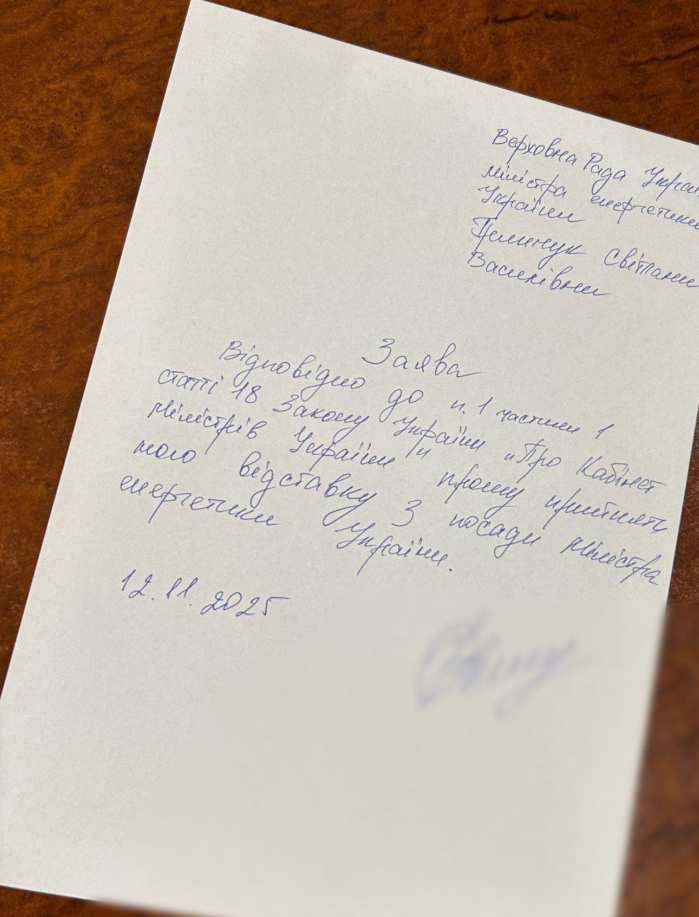 Верховна Рада Украї
міністра енергетики
України
Гринчук Світлани
Василівни
Заява
Відповідно до п. 1 частини 1
статті 18 Закону України „Про Кабінет
Міністрів України" прошу прийняти
мою відставку з посади міністра
енергетики України.
12.11.2025